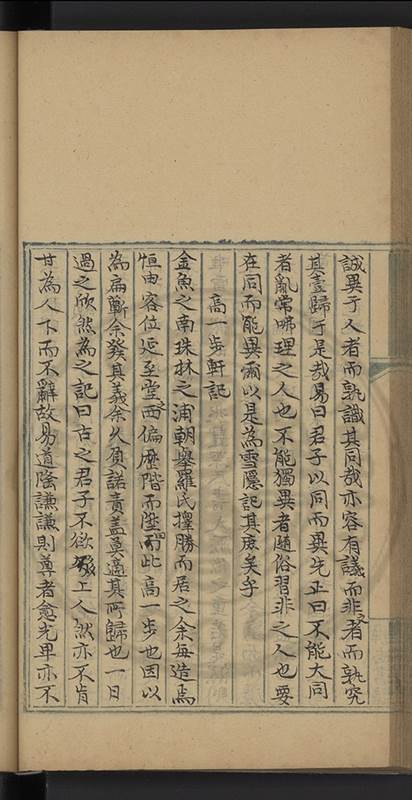 誠異于人者而孰識其同哉亦容有議而非者而孰究
其壹歸于是哉易曰君子以同而異先正曰不能大同
者亂常咈理之人也不能獨異者隨俗習非之人也要
在同而能異爾以是為雪隱記其庶矣乎
高一步軒記
金魚之南珠林之浦朝舉羅氏擇勝而居之余每造焉
恒由客位迤至堂西偏歷階而陞而此高一步也因以
為扁蘄余發其義余久負諾責蓋莫適其所歸也一日
過之欣然為之記曰古之君子不欲上人然亦不肯
甘為人下而不辭故易道陰謙謙則尊者愈光卑亦不